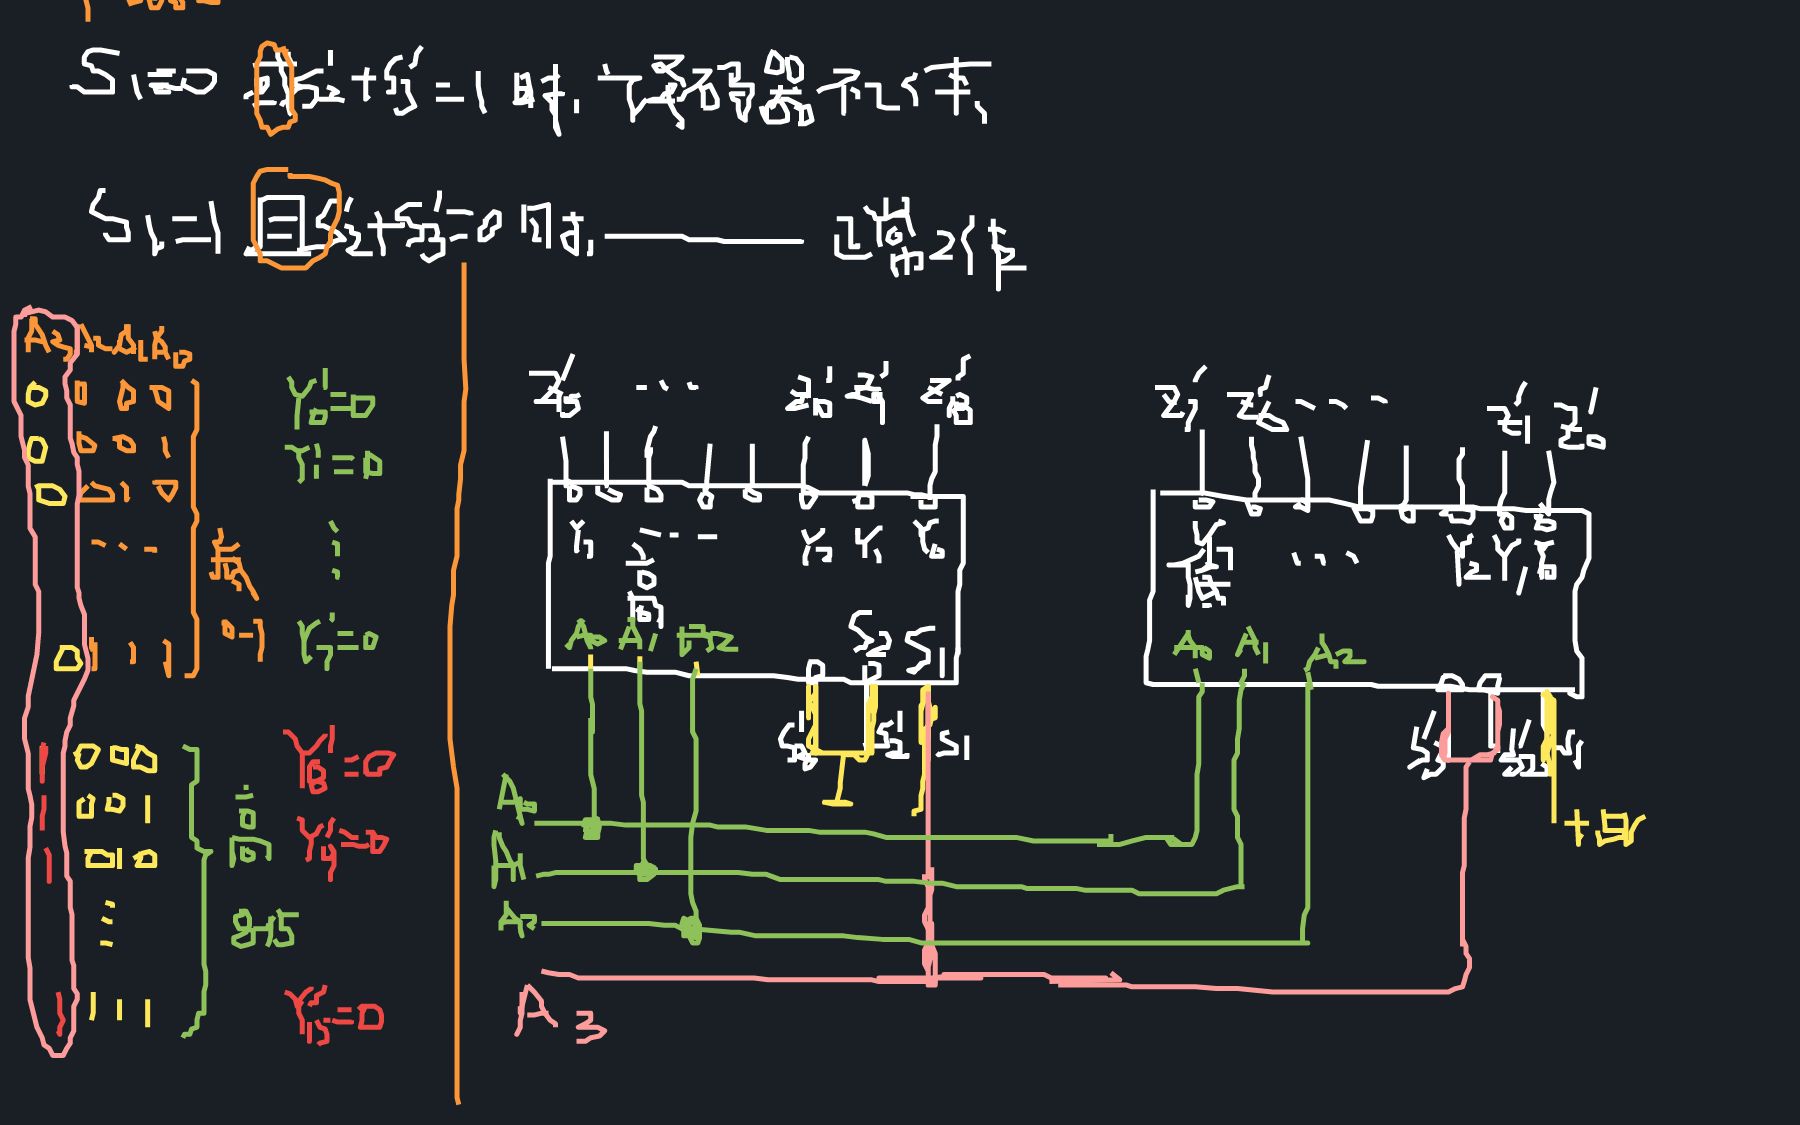 S₁=0 或 S₂'+S₃'=1 时, 译码器不工作
S₁=1 且 S₂'+S₃'=0 时, —— 正常工作
A₃ A₂ A₁ A₀
0 0 0 0 Y₀'=0
0 0 0 1 Y₁'=0
0 0 1 0
... ⋮
低片
0-7
0 1 1 1 Y₇'=0
1 0 0 0 Y₈'=0
1 0 0 1 Y₉'=0
1 0 1 0
⋮
高
8-15
1 1 1 1 Y₁₅'=0
Z₁₅' ... Z₁₀' Z₉' Z₈'
Y₇ ... Y₂ Y₁ Y₀
高
A₀ A₁ A₂ S₂ S₁
S₃' S₂' S₁
Z₇' Z₆' ... Z₁' Z₀'
Y₇ ... Y₂ Y₁ Y₀
低
A₀ A₁ A₂
S₃' S₂' S₁
+5V
A₀
A₁
A₂
A₃